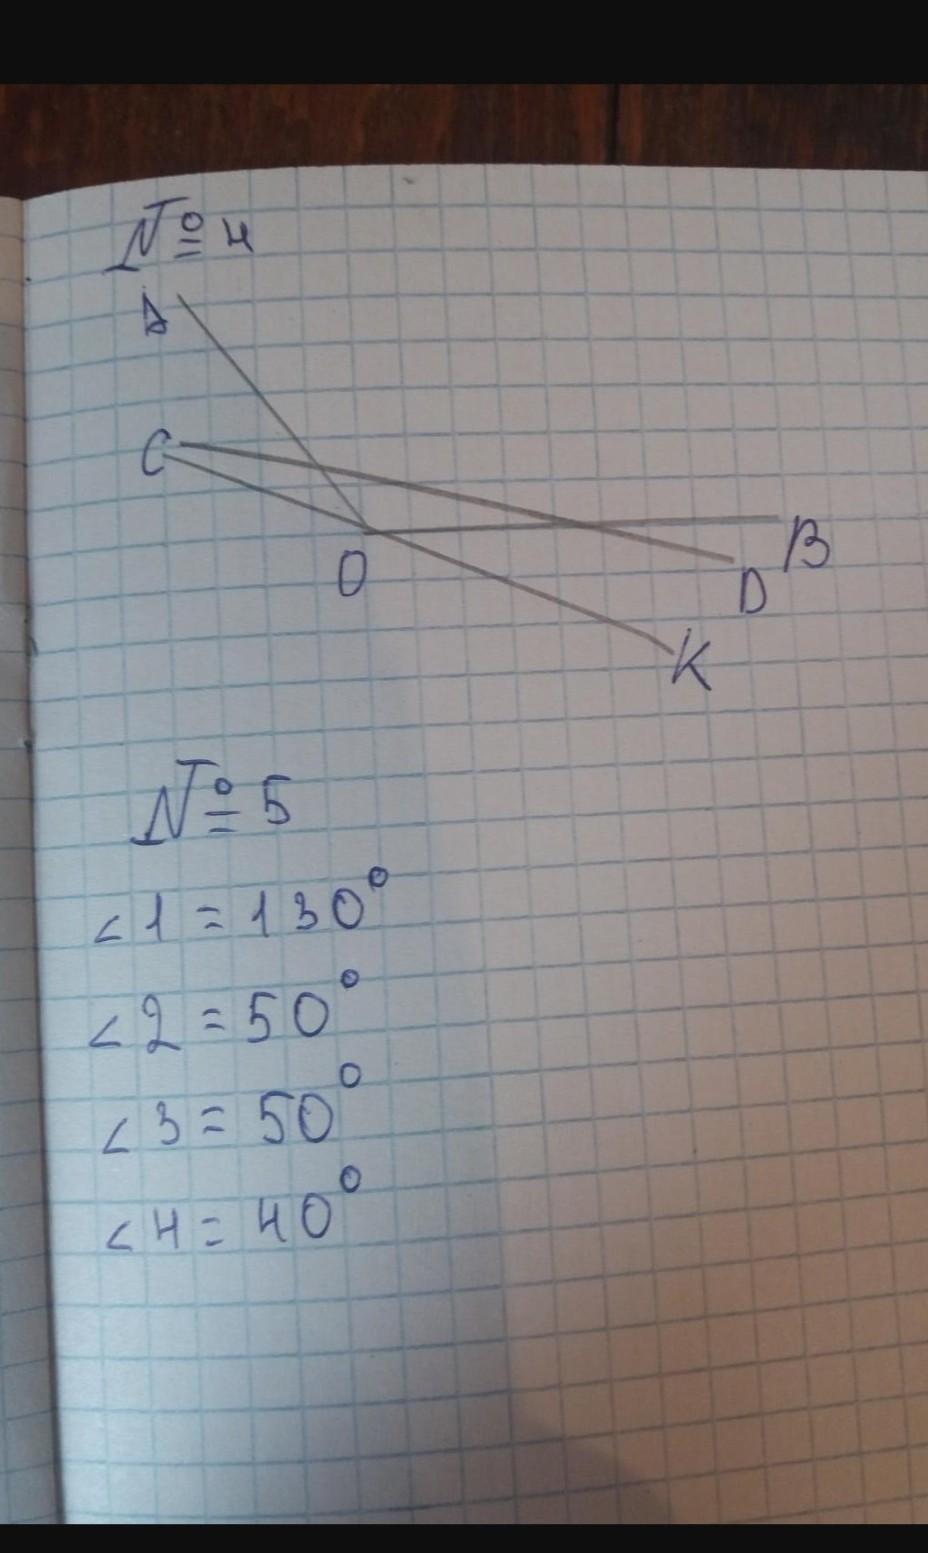 № 4
A
C
O
B
D
K
№ 5
∠1 = 130°
∠2 = 50°
∠3 = 50°
∠4 = 40°